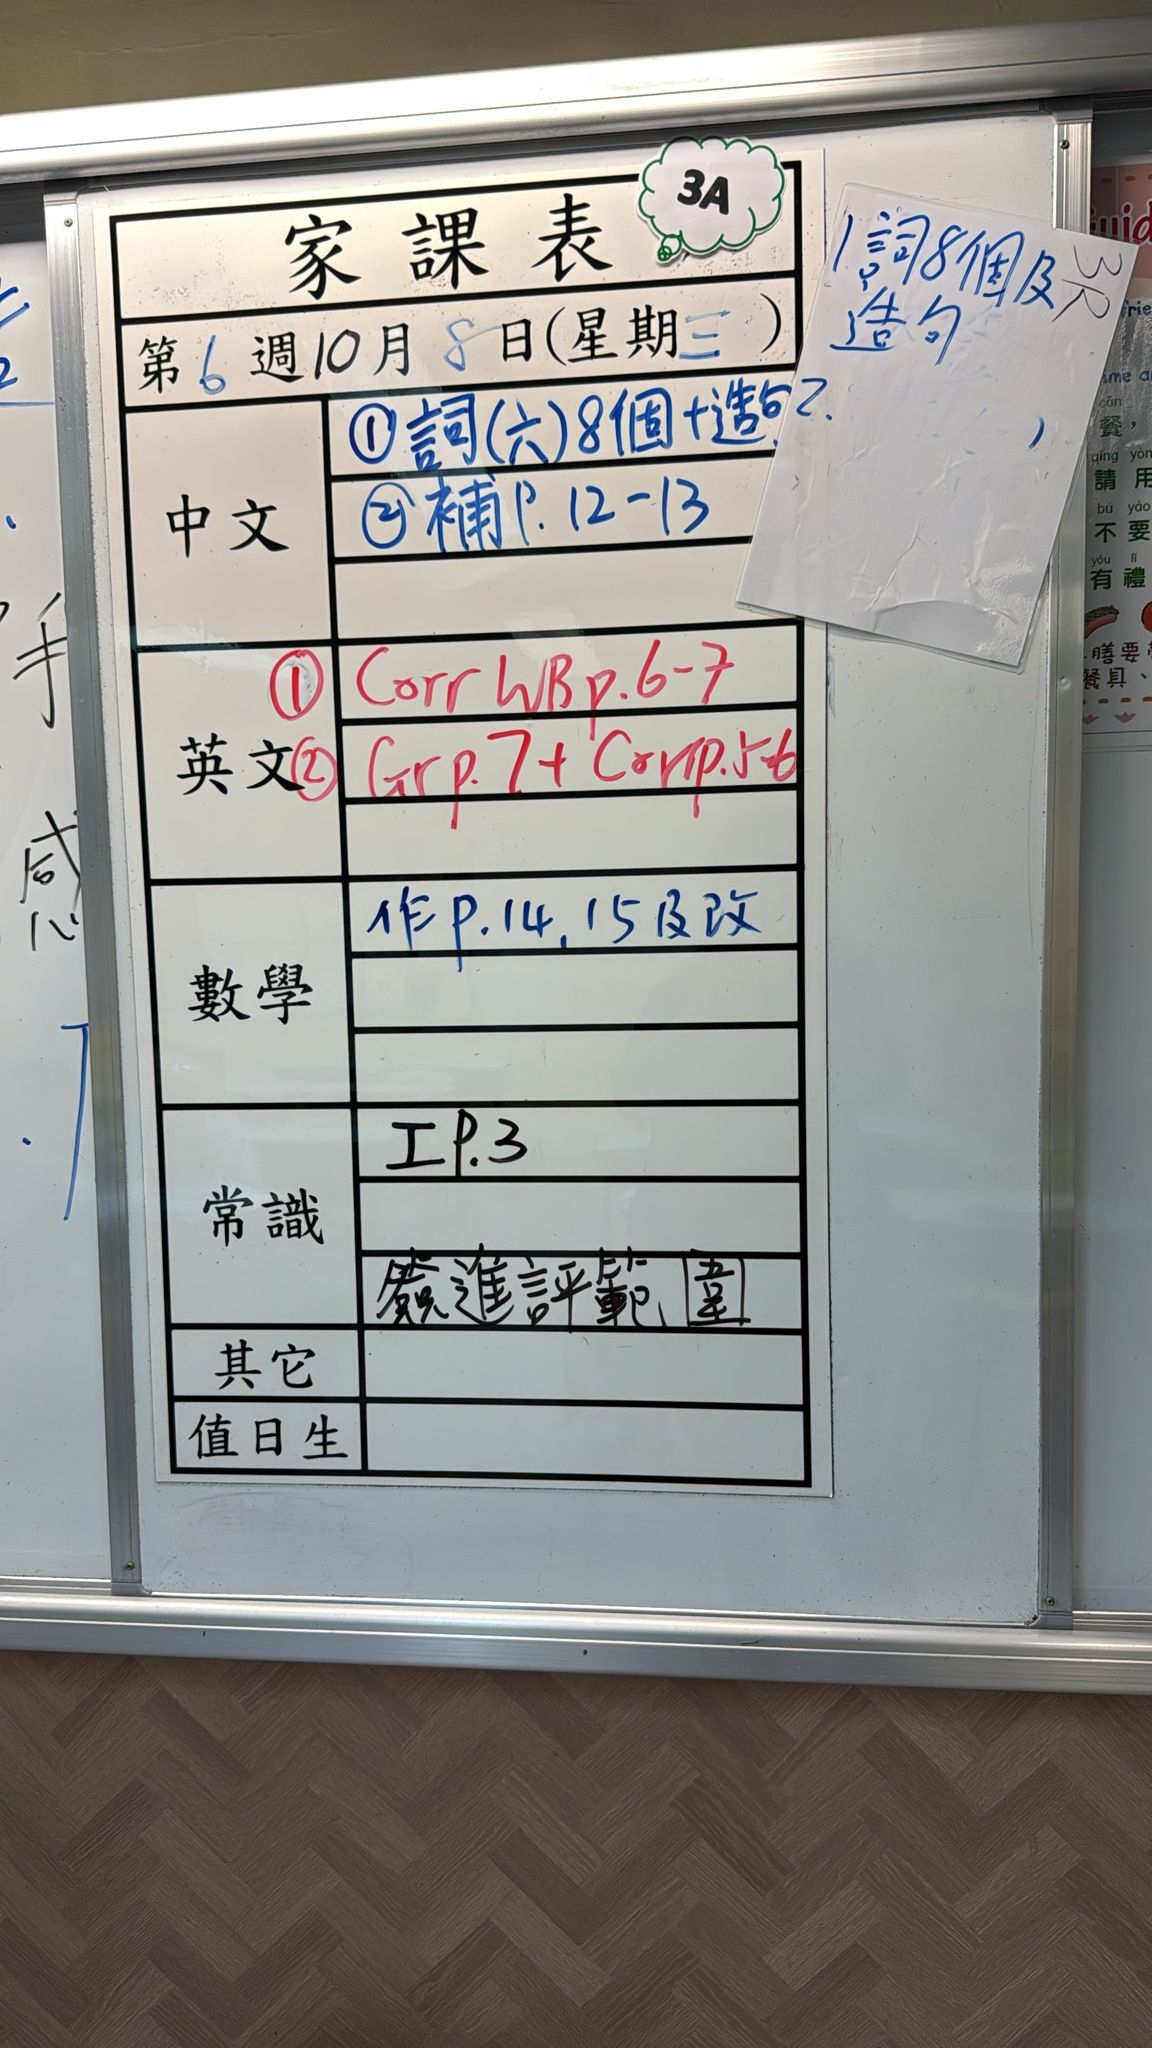 3A
家課表
第6週10月8日(星期三)
中文
①詞(六)8個+造句2.
②補P.12-13
英文
① Corr WB p.6-7
② Gr p.7 + Corr p.5-6
數學
作P.14,15及改
常識
工P.3
簽進評範圍
其它
值日生
3R
1詞8個及
造句
手
感
餐，
請用
不要
有禮
膳要
餐具、